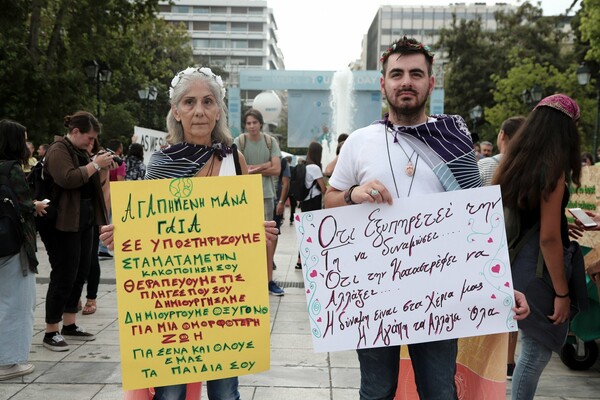 ΑΓΑΠΗΜΕΝΗ ΜΑΝΑ
ΓΑΙΑ
ΣΕ ΥΠΟΣΤΗΡΙΖΟΥΜΕ
ΣΤΑΜΑΤΑΜΕ ΤΗΝ
ΚΑΚΟΠΟΙΗΣΗ ΣΟΥ
ΘΕΡΑΠΕΥΟΥΜΕ ΤΙΣ
ΠΛΗΓΕΣ ΠΟΥ ΣΟΥ
ΔΗΜΙΟΥΡΓΗΣΑΜΕ
ΔΗΜΙΟΥΡΓΟΥΜΕ ΟΞΥΓΟΝΟ
ΓΙΑ ΜΙΑ ΟΜΟΡΦΟΤΕΡΗ
ΖΩΗ
ΓΙΑ ΣΕΝΑ ΚΑΙ ΟΛΟΥΣ
ΕΜΑΣ
ΤΑ ΠΑΙΔΙΑ ΣΟΥ
Ότι Εξυπηρετεί την
Γη να δυναμώσει...
Ότι την Καταστρέφει να
Αλλάξει...
Η δύναμη είναι στα Χέρια μας
Η Αγάπη τα Αλλάζει Όλα.